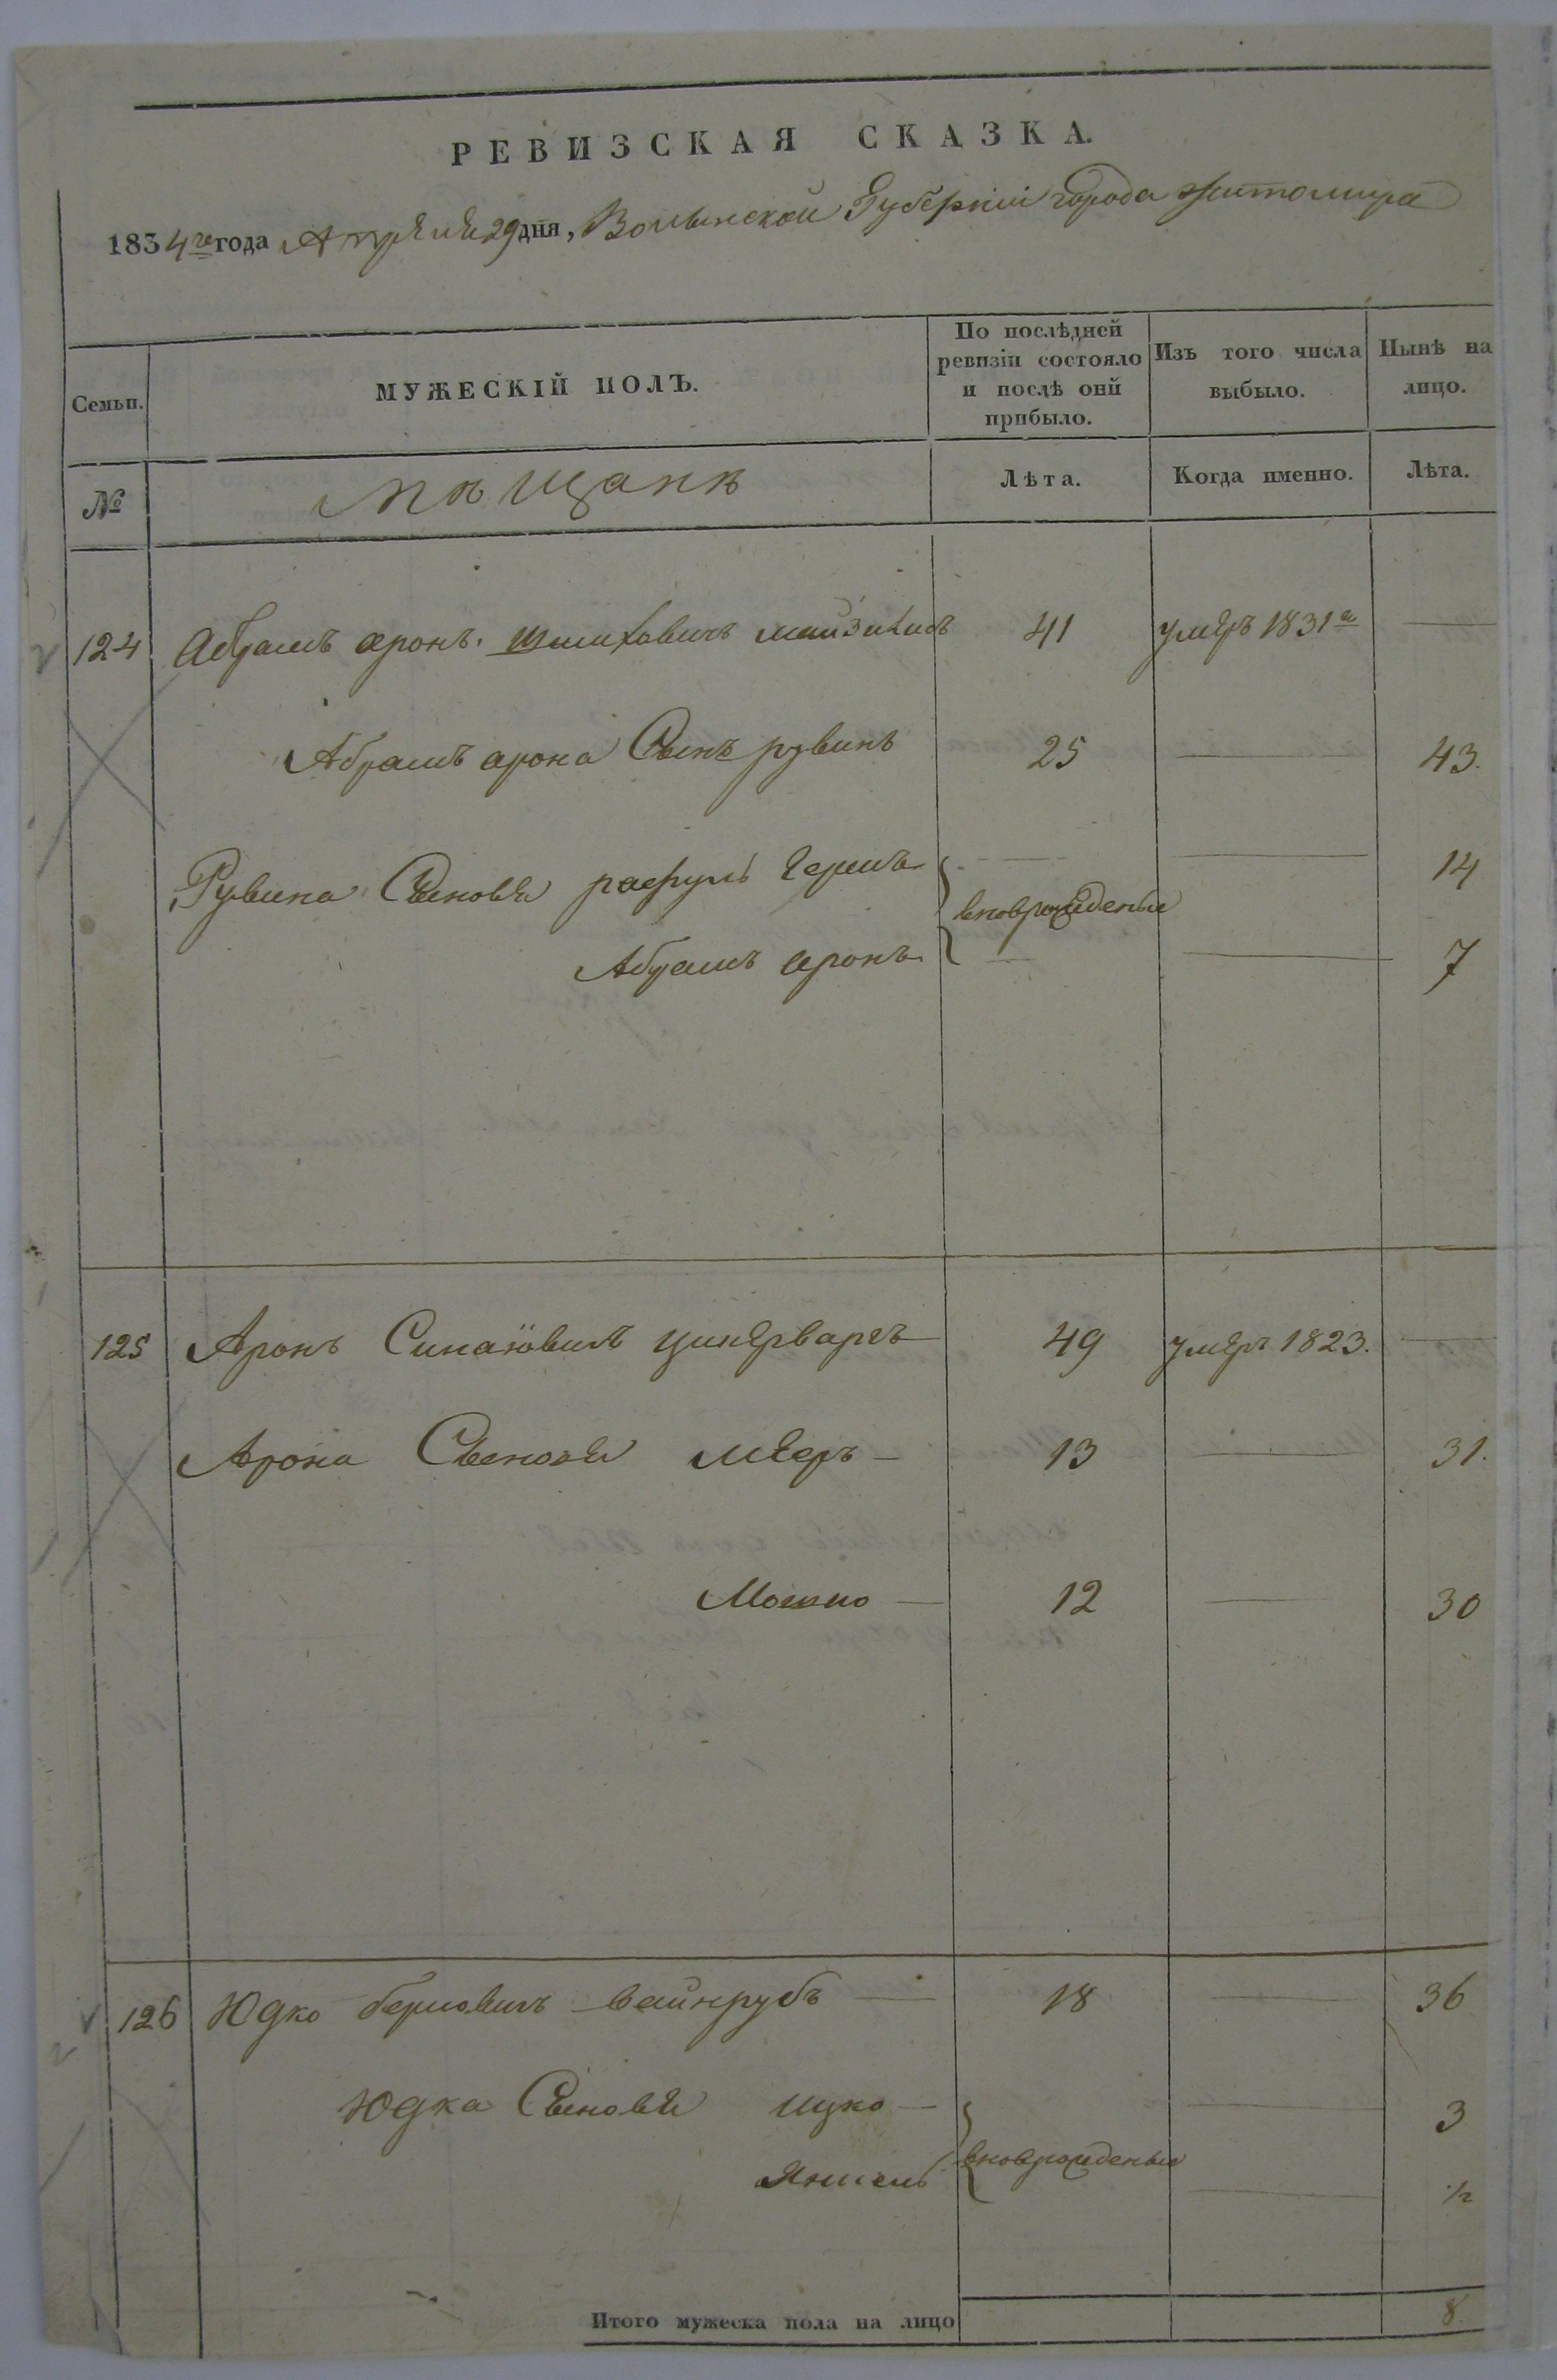 РЕВИЗСКАЯ СКАЗКА.
1834го года Апреля 29 дня, Волынской Губернии города Житомира
Семьи. МУЖЕСКІЙ ПОЛЪ. По послѣдней ревизіи состояло и послѣ оній прибыло. Изъ того числа выбыло. Нынѣ на лицо.
№ мѣщанѣ Лѣта. Когда именно. Лѣта.
124 Абрамъ аронъ Шмулевичъ 41 умеръ 1831го
Абрамъ арона Сынъ рувинъ 25 43.
Рувина Сыновья рафулъ Гершъ 14
вноврожденые
Абрамъ аронъ 7
125 Аронъ Синаіовичъ цинервагъ 49 умеръ 1823.
Арона Сыновья мееръ 13 31.
Мошко 12 30
126 Юдко берковичъ вайнрубъ 18 36
Юдка Сыновья ицко 3
вноврожденые
Янкель 1/2
Итого мужеска пола на лицо 8